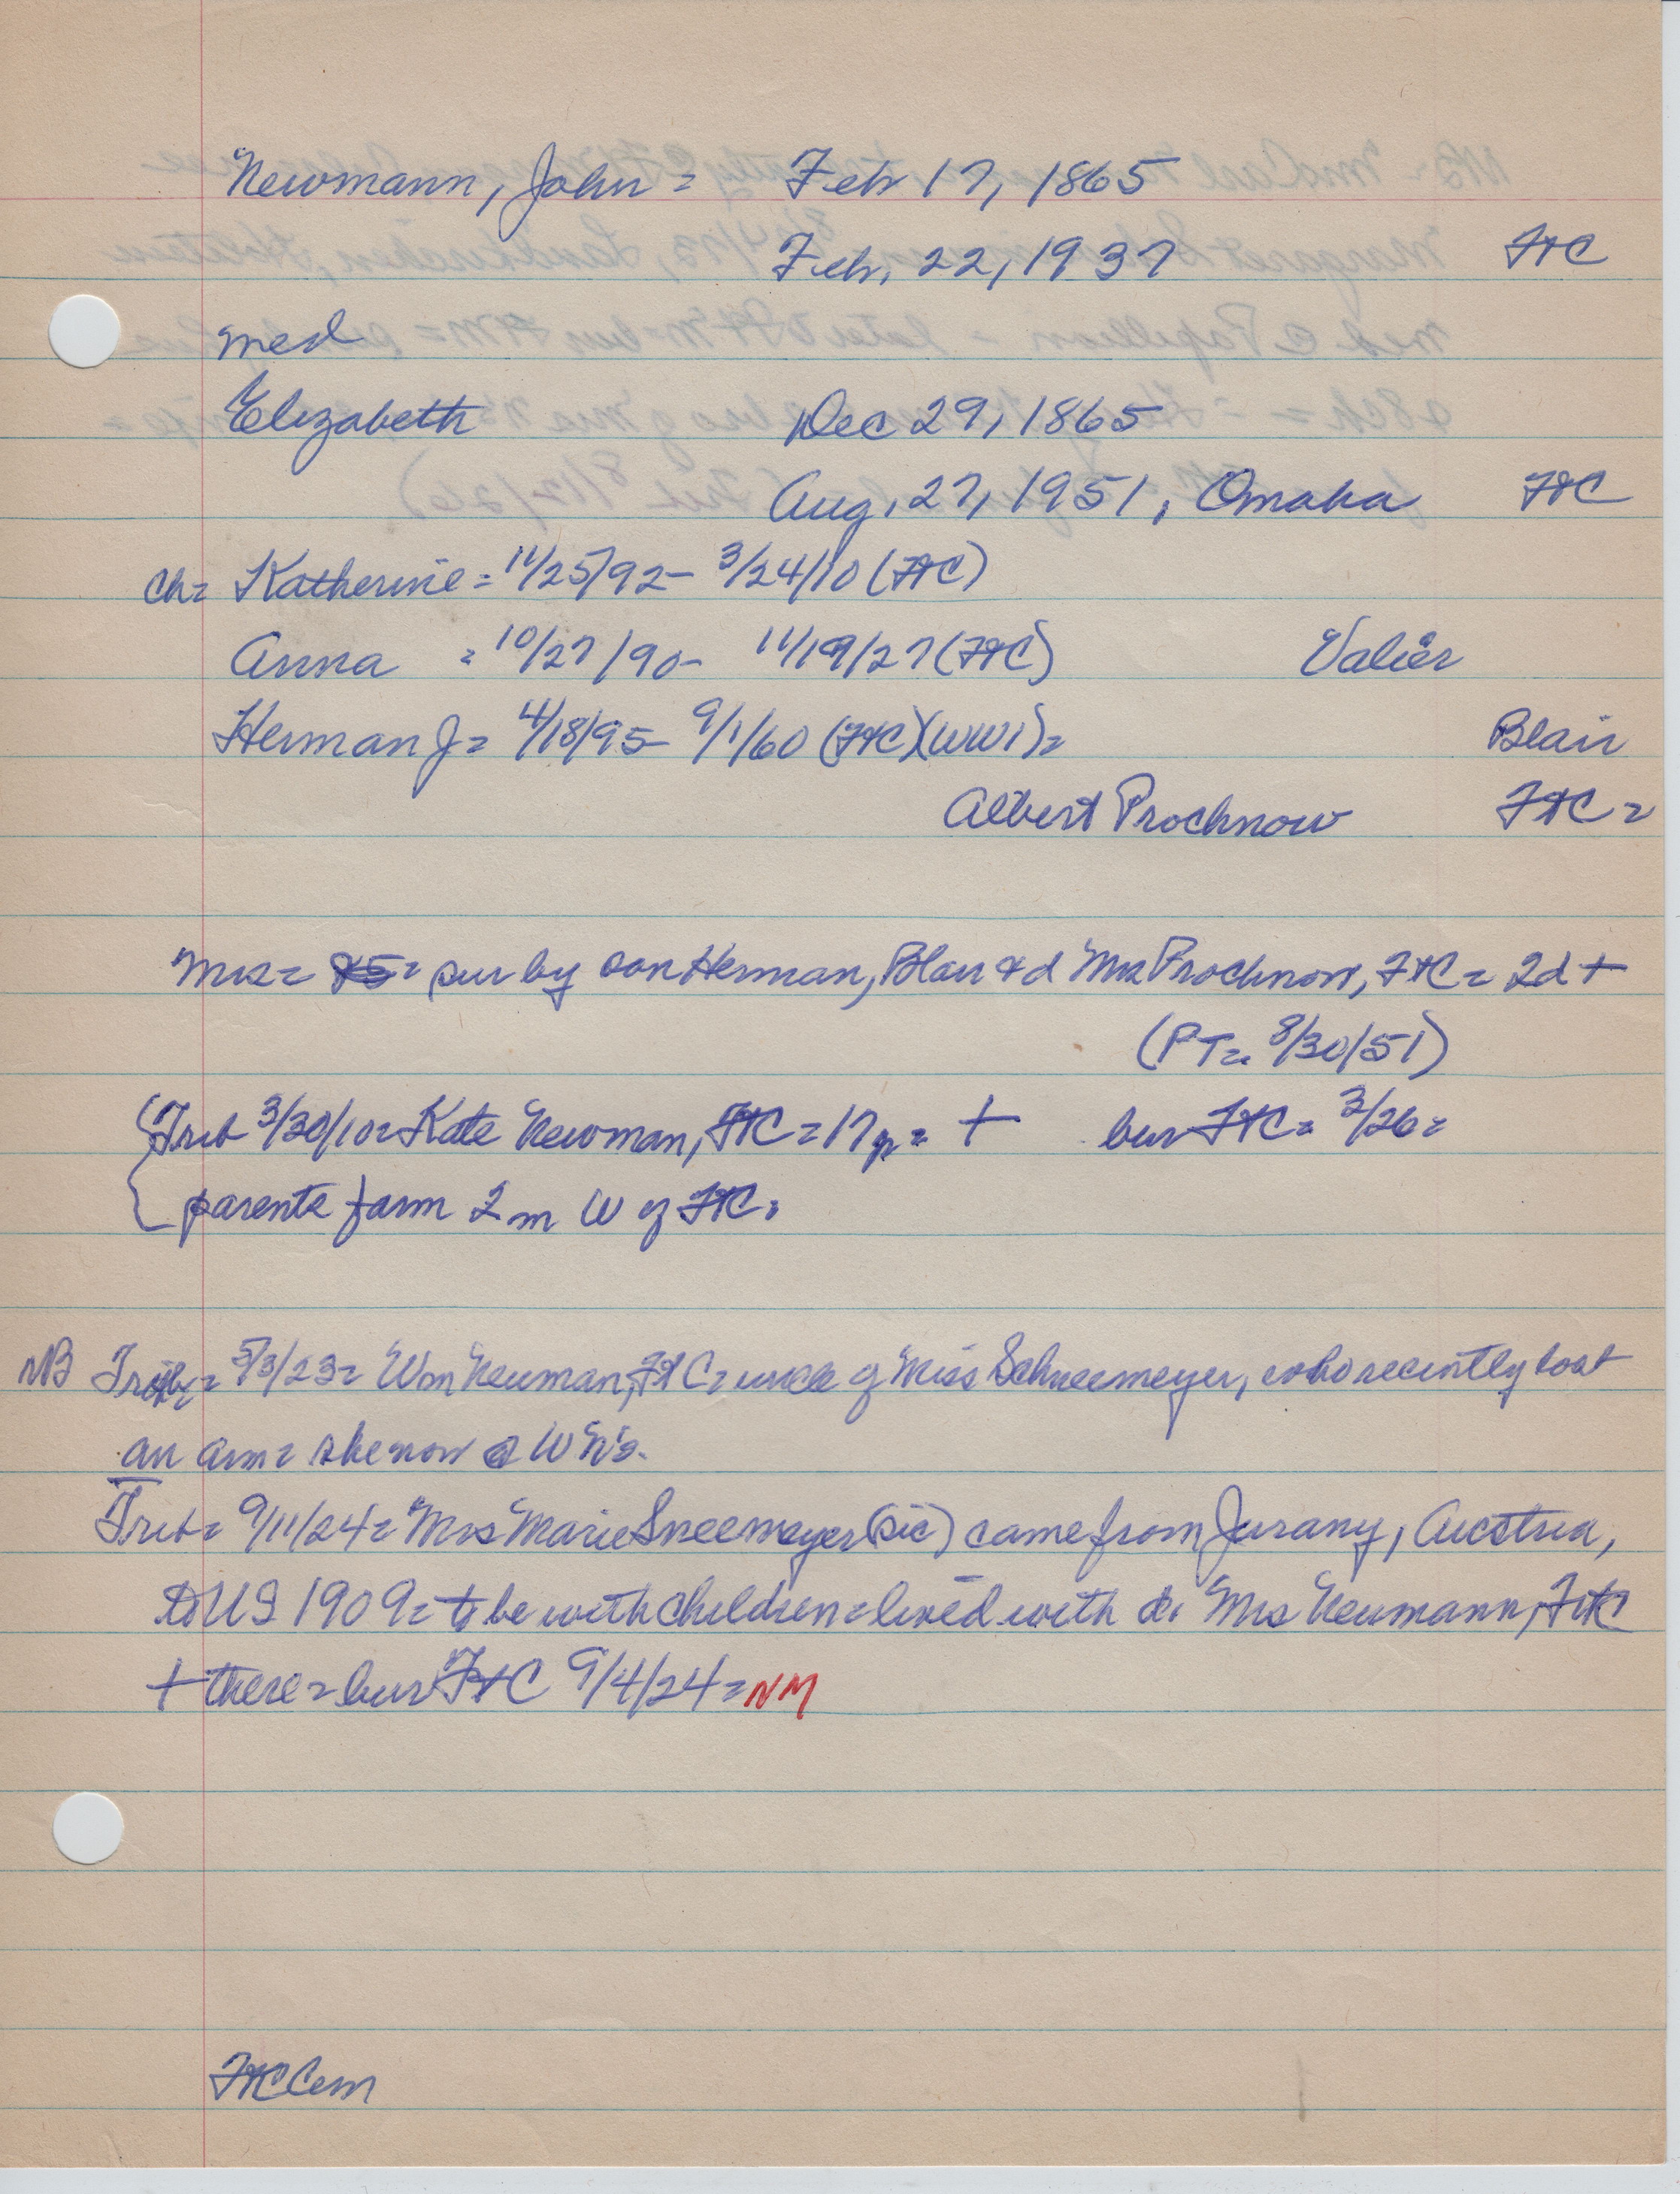 Newmann, John = Feb 17, 1865
Feb. 22, 1937 FtC
med
Elizabeth Dec 29, 1865
Aug. 27, 1951, Omaha FtC
Ch= Katherine = 11/25/92 - 3/24/10 (FtC)
Anna = 10/27/90 - 11/19/27 (FtC) Valier
Herman J = 4/18/95 - 9/1/60 (FtC)(WW1) = Blair
Albert Prochnow FtC =
Mrs = 85 = sur by son Herman, Blair & d Mrs Prochnow, FtC = 2d +
(PT = 8/30/51)
Trib 3/30/10 = Kate Newman, FtC = 17y = + bur FtC = 3/26 =
parents farm 2 m W of FtC.
NB Trib = 5/3/23 = Wm Neuman, FtC = uncle of Miss Schneemeyer, who recently lost
an arm = she now @ WN's.
Trib = 9/11/24 = Mrs Marie Sneemeyer (sic) came from Jurany, Austria,
to US 1909 = to be with children = lived with d. Mrs Neumann, FtC
+ there = bur FtC 9/4/24 = NM
FtC Cem